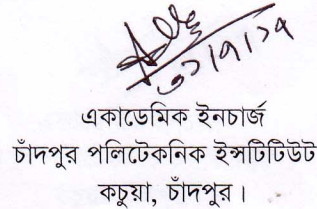 ৩১/৭/১৭
একাডেমিক ইনচার্জ
চাঁদপুর পলিটেকনিক ইন্সটিটিউট
কচুয়া, চাঁদপুর।